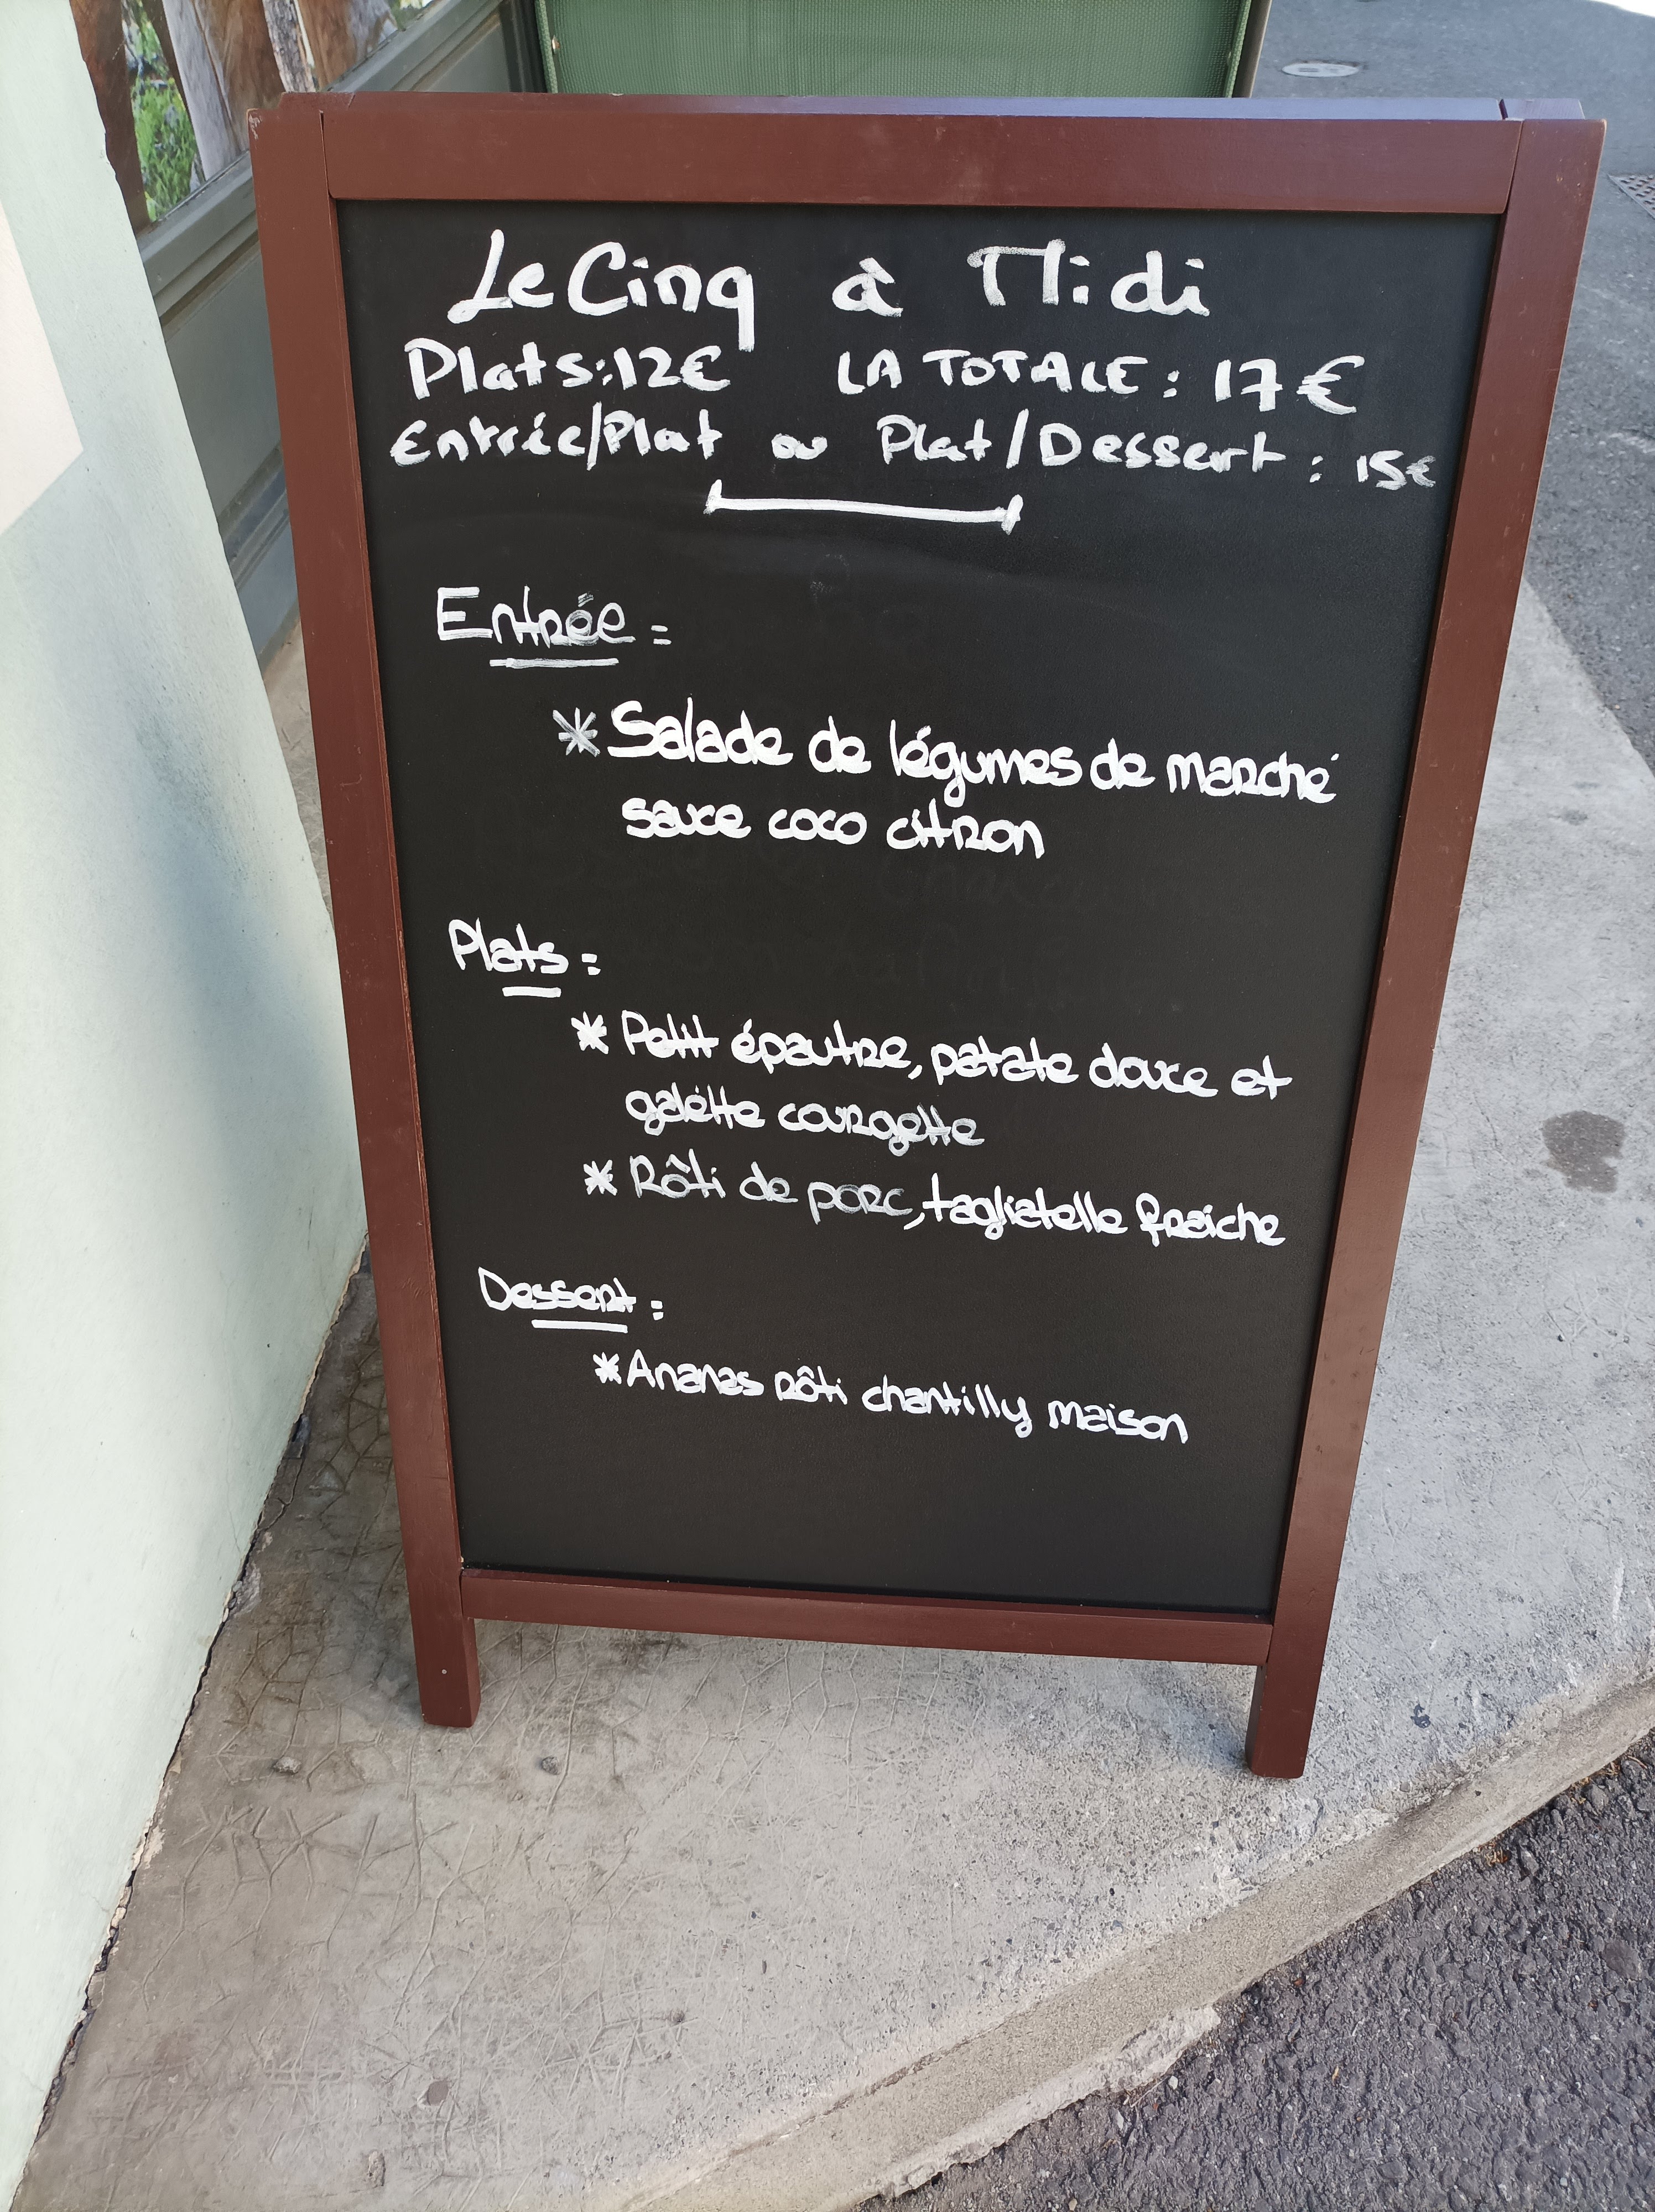 Le Cinq à Midi
Plats: 12€ LA TOTALE : 17€
Entrée/Plat ou Plat/Dessert : 15€
Entrée :
* Salade de légumes de marché
sauce coco citron
Plats :
* Petit épautre, patate douce et
galétte courgette
* Rôti de porc, tagliatelle fraiche
Dessert :
* Ananas rôti chantilly maison